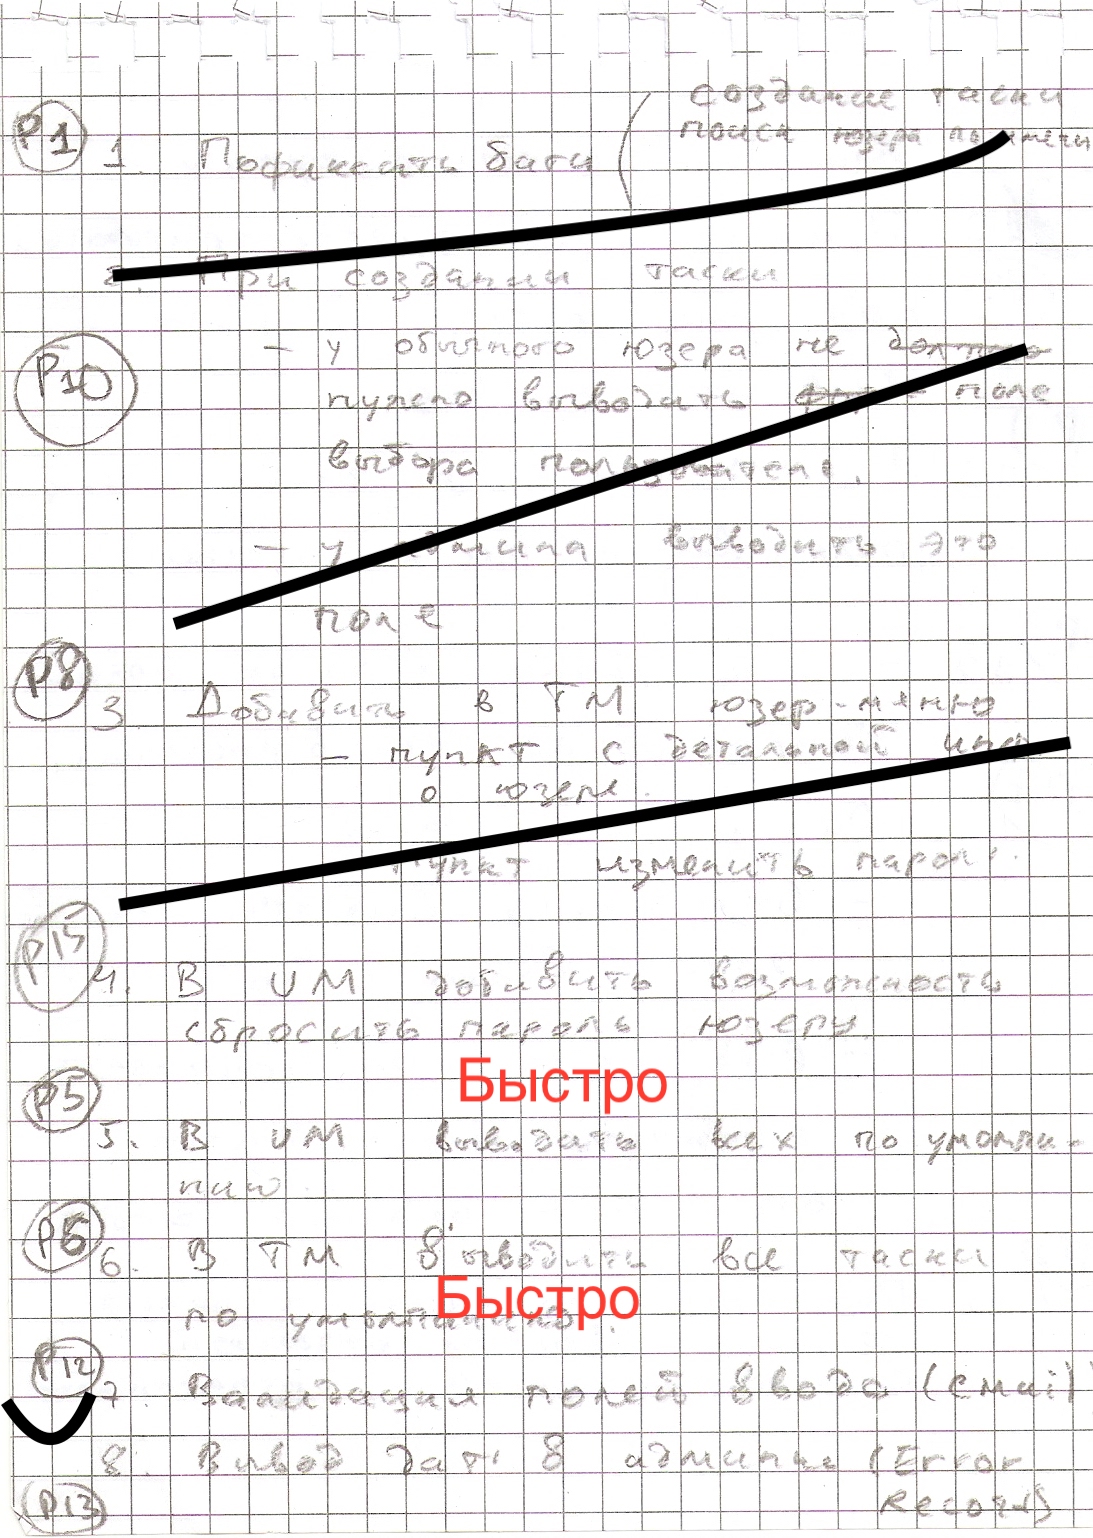 P1 1 Пофиксить баги ( создание таски
поиск юзера по имени
2. При создании таски
P10
– у обычного юзера не должно
нужно выводить поле
выбора пользователя.
– у админа выводить это
поле
P8
3 Добавить в ТМ юзер-меню
– пункт с детальной инф
о юзере.
пункт изменить пароль.
P15
4. В UM добавить возможность
сбросить пароль юзеру.
Быстро
P5
5. В UM выводить всех по умолча-
нию
P6
6. В ТМ выводить все таски
Быстро
по умолчанию.
P12
7. Валидация полей ввода (
8. Вывод дат в админке (Error
P13 Records)